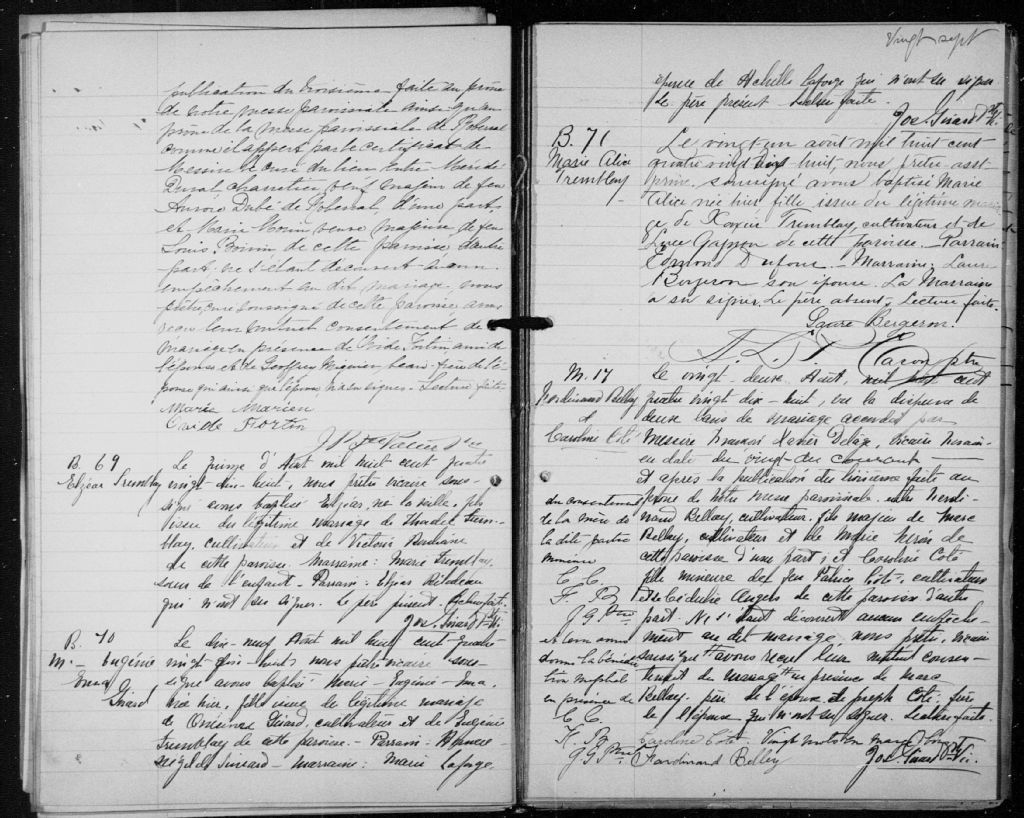 publication du troisième faite au prône
de notre messe paroissiale ainsi qu'au
prône de la messe paroissiale de Roberval
comme il appert par le certificat de
Messire le curé du lieu entre
Duval charretier veuf majeur de feu
Aurore Dubé de Roberval, d'une part,
et Marie Morin veuve majeure de feu
Louis de cette paroisse d'autre
part; ne s'étant découvert aucun
empêchement au dit mariage, nous
prêtre, curé soussigné de cette paroisse, avons
reçu leur mutuel consentement de
mariage en présence de Ovide Fortin ami de
l'épouse et de Geoffroy beau-frère de l'é-
pouse qui ainsi que l'époux, n'a su signer. Lecture faite
Marie
Ovide Fortin
Ptre
B. 69
Elzéar Tremblay
Le quinze d'Aout mil huit cent quatre
vingt dix-huit, nous prêtre vicaire sous-
signé avons baptisé Elzéar, né la veille, fils
issu du légitime mariage de Thadée Trem-
blay, cultivateur et de Victoria
de cette paroisse. Marraine: Marie Tremblay,
soeur de l'enfant - Parrain: Elzéar
qui n'ont su signer. Le père présent. Lecture faite.
Jos. Girard Ptre Vi.
B. 70
M. - Eugénie
Ema
Girard
Le dix-neuf Aout mil huit cent quatre
vingt dix-huit nous prêtre vicaire sous-
signé avons baptisé Marie - Eugénie - Ema,
née hier, fille issue du légitime mariage
de Girard, cultivateur et de Eugénie
Tremblay de cette paroisse - Parrain:
- Marraine: Marie Laforge,
Vingt sept
épouse de Achille Laforge qui n'ont su signer
Le père présent Lecture faite.
Jos. Girard Ptre Vi.
B. 71
Marie Alice
Tremblay
Le vingt un août mil huit cent
quatre vingt dix huit, nous prêtre asst
soussigné avons baptisé Marie
Alice née hier fille issue du légitime maria-
ge de Xavier Tremblay, cultivateur et de
Luce Gagnon de cette paroisse. Parrain
Edmond Dufour. - Marraine: Laure
Bergeron son épouse. La Marraine
a su signer. Le père absent. Lecture faite.
Laure Bergeron.
Ptre
M. 17
Ferdinand Bellay
&
Caroline Coté
Le vingt-deux Août, mil huit cent
quatre vingt dix-huit, vu la dispense de
deux bans de mariage accordée par
Messire François Xavier Delâge, vicaire forain
en date du vingt du courant
et après la publication du troisième faite au
prône de notre messe paroissiale entre Ferdi-
nand Bellay, cultivateur, fils majeur de Marc
Bellay, cultivateur et de Marie de
cette paroisse d'une part; et Caroline Coté
fille mineure de feu Patrice Coté, cultivateur
et de Cédulie Angers de cette paroisse d'autre
part. Ne s'étant découvert aucun empêche-
ment au dit mariage nous prêtre, vicaire
soussigné avons reçu leur mutuel consen-
tement de mariage en présence de Marc
Bellay, père de l'époux et de Joseph Coté, frère
de l'épouse qui n'ont su signer. Lecture faite.
du consentement
de la mère de
la dite partie
mineure
C. C.
F. B.
J G Ptre
et leur avons
donné la bénédic-
tion nuptiale
en présence de
C. C.
F. B.
J G Ptre
Caroline Coté Vingt mots en marge bons
Ferdinand Bellay Jos. Girard Ptre Vi.